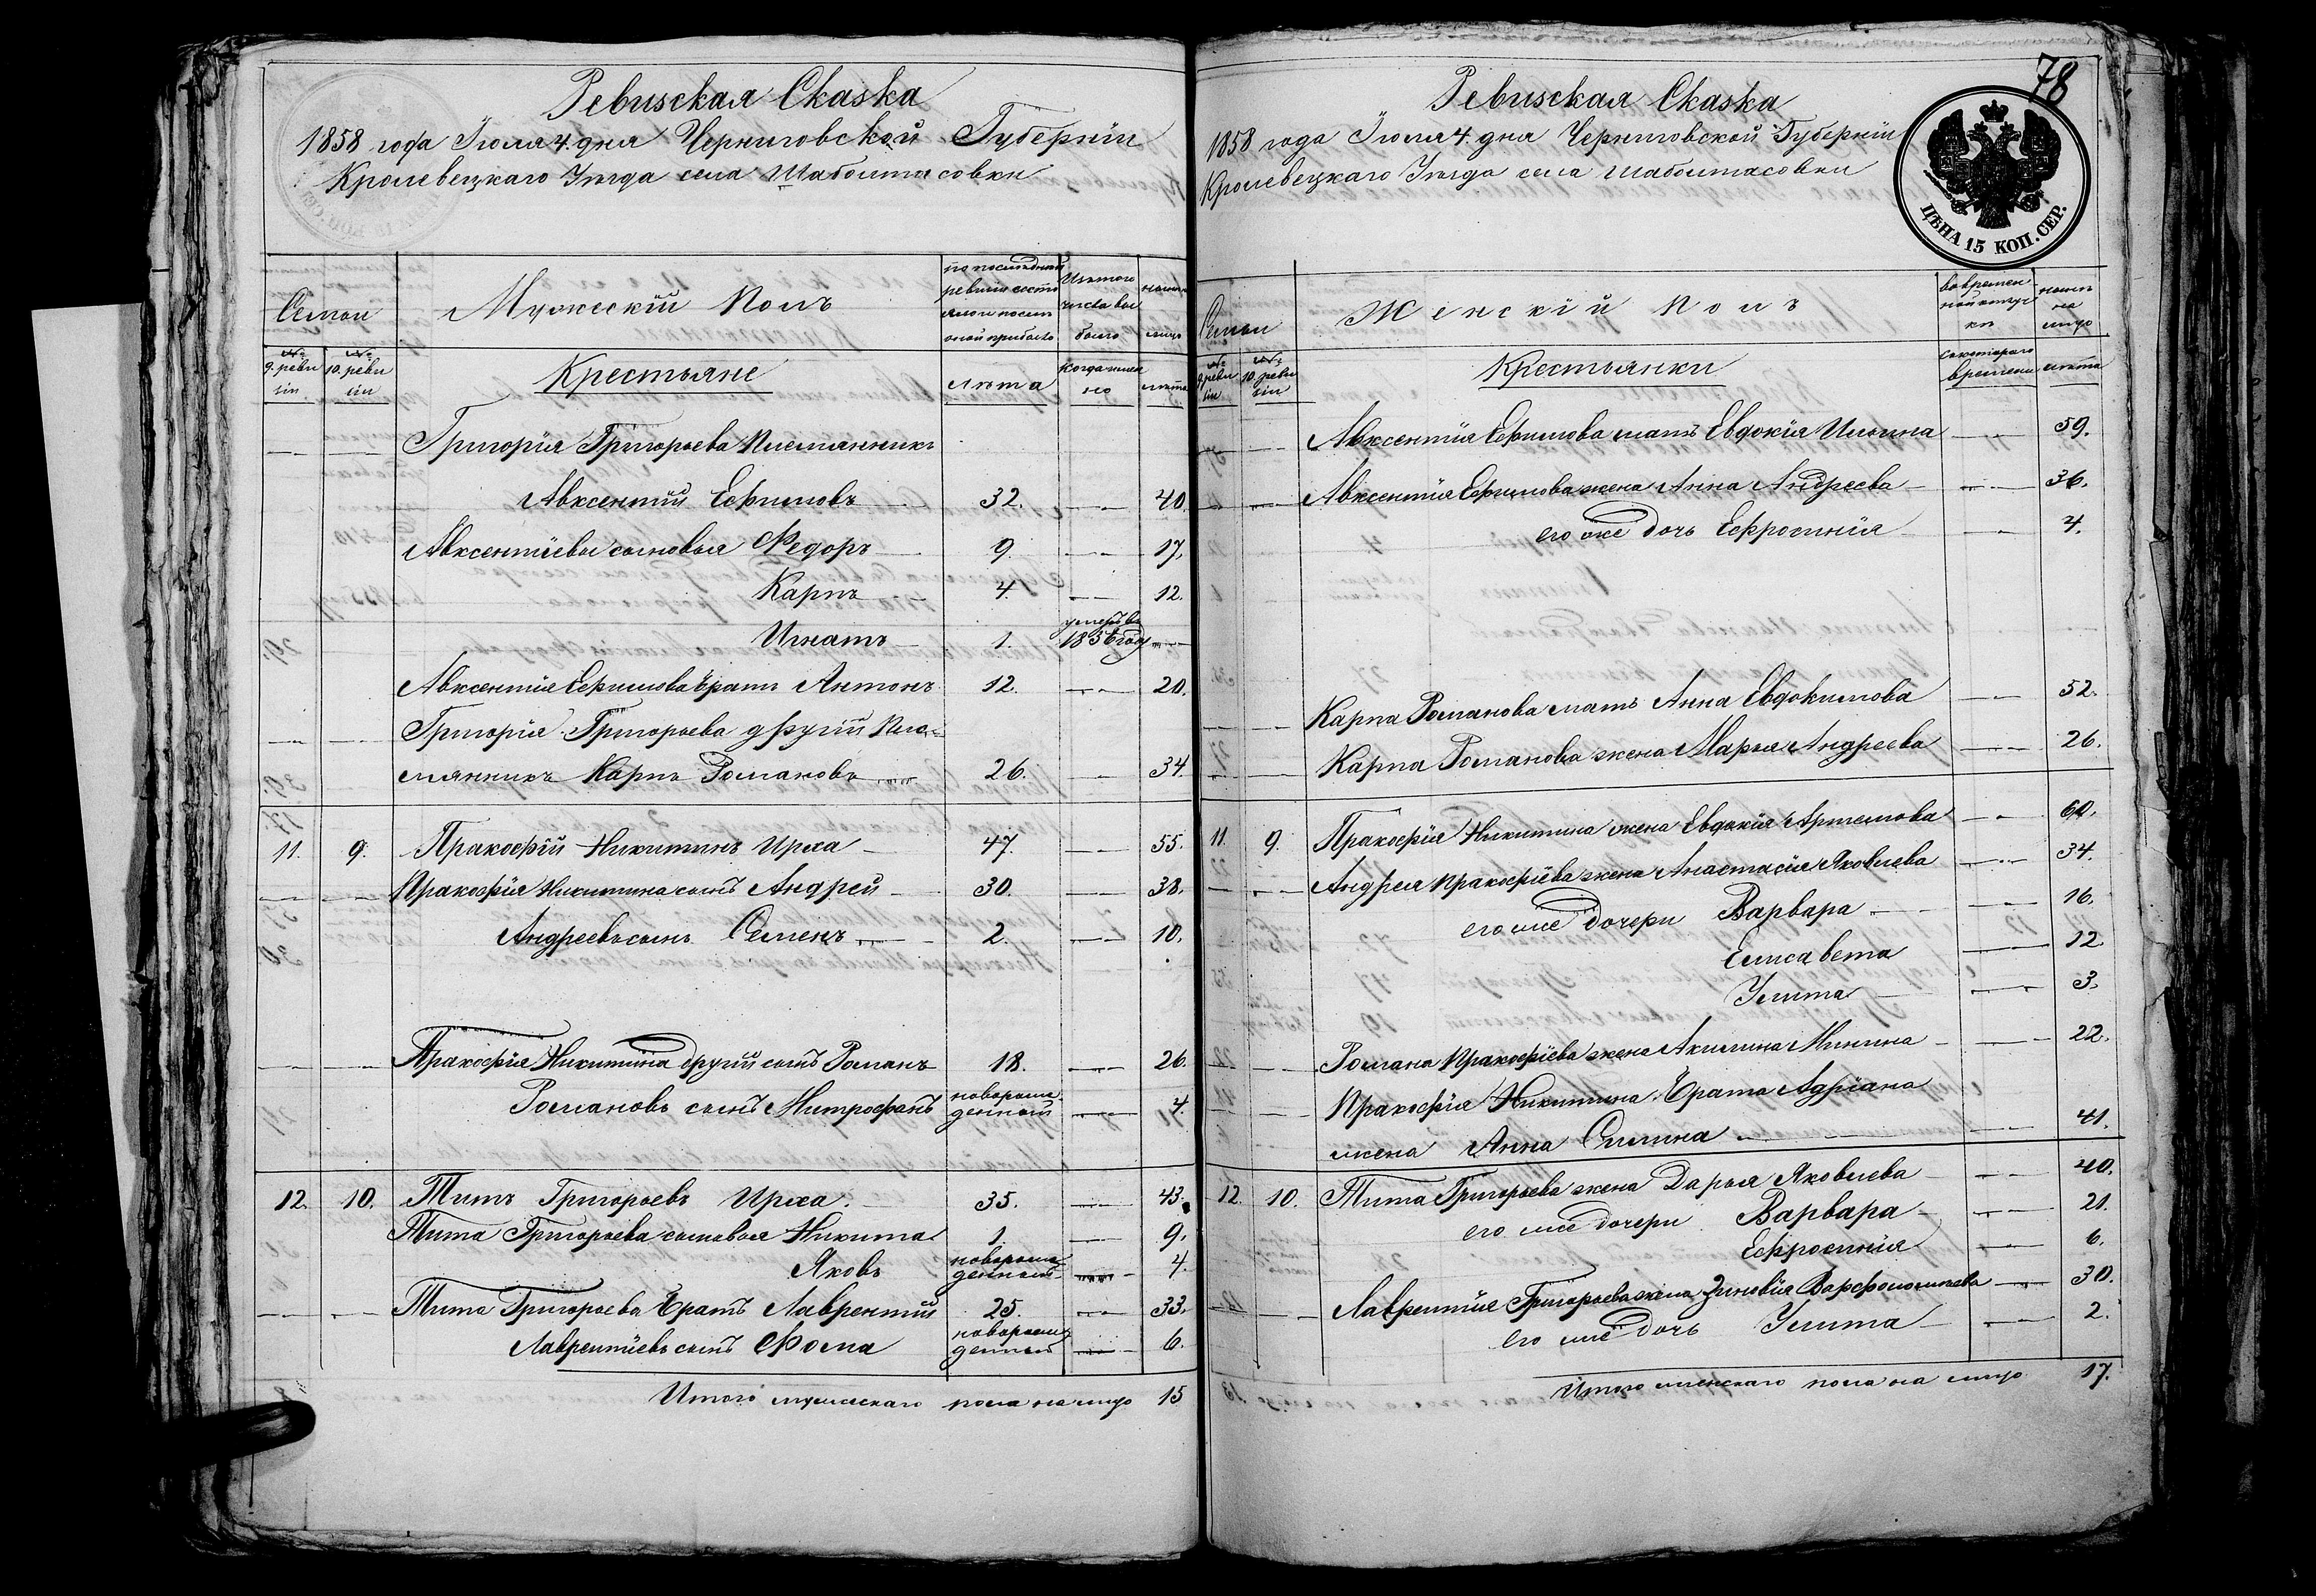 Ревизская Сказка
1858 года Іюля 4. дня Черниговской Губерніи
Кролевецкаго Уѣзда села Шаболтасовки
Семьи
Мужескій Полъ
по послѣдней ревизіи состояло и послѣ оной прибыло
Изъ того числа выбыло
налицо
№ 9. ревизіи
№ 10. ревизіи
Крестьяне
лѣта
когда именно
лѣта
Григорія Григорьева племянникъ
Авксентій Ефимовъ 32. 40.
Авксентіевы сыновья Федоръ 9. 17.
Карпъ 4. 12.
Игнатъ 1. умеръ въ 1856 году
Авксентія Ефимова братъ Антонъ 12. 20.
Григорія Григорьева другій пле-
мянникъ Карпъ Романовъ 26. 34.
11. 9. Пракофій Никитинъ Ирха 47. 55.
Пракофія Никитина сынъ Андрей 30. 38.
Андреевъ сынъ Семенъ 2. 10.
Пракофія Никитина другій сынъ Романъ 18. 26.
Романовъ сынъ Митрофанъ новорожденный 4.
12. 10. Титъ Григорьевъ Ирха. 35. 43.
Тита Григорьева сыновья Никита 1. 9.
Яковъ новорожденный 4.
Тита Григорьева братъ Лаврентій 25. 33.
Лаврентіевъ сынъ Фома новорожденный 6.
Итого мужескаго пола на лицо 15
78
Ревизская Сказка
1858 года Іюля 4. дня Черниговской Губерніи
Кролевецкаго Уѣзда села Шаболтасовки
ЦѢНА 15 КОП. СЕР.
Семьи
Женскій Полъ
во временной отлучки
налицо
№ 9. ревизіи
№ 10. ревизіи
Крестьянки
съ котораго времени
лѣта
Авксентія Ефимова мать Евдокія Ильина 59.
Авксентія Ефимова жена Анна Андреева 36.
его же дочь Ефросинія 4.
Карпа Романова мать Анна Евдокимова 52.
Карпа Романова жена Марья Андреева 26.
11. 9. Пракофія Никитина жена Евдокія Артемова 60.
Андрея Пракофіева жена Анастасія Яковлева 34.
его же дочери Варвара 16.
Елисавета 12.
Улита 3.
Романа Пракофіева жена Акилина Минина 22.
Пракофія Никитина брата Адріана
жена Анна Силина 41.
12. 10. Тита Григорьева жена Дарья Яковлева 40.
его же дочери Варвара 21.
Ефросинія 6.
Лаврентія Григорьева жена Зиновія Варфоломѣева 30.
его же дочь Улита 2.
Итого женскаго пола на лицо 17.